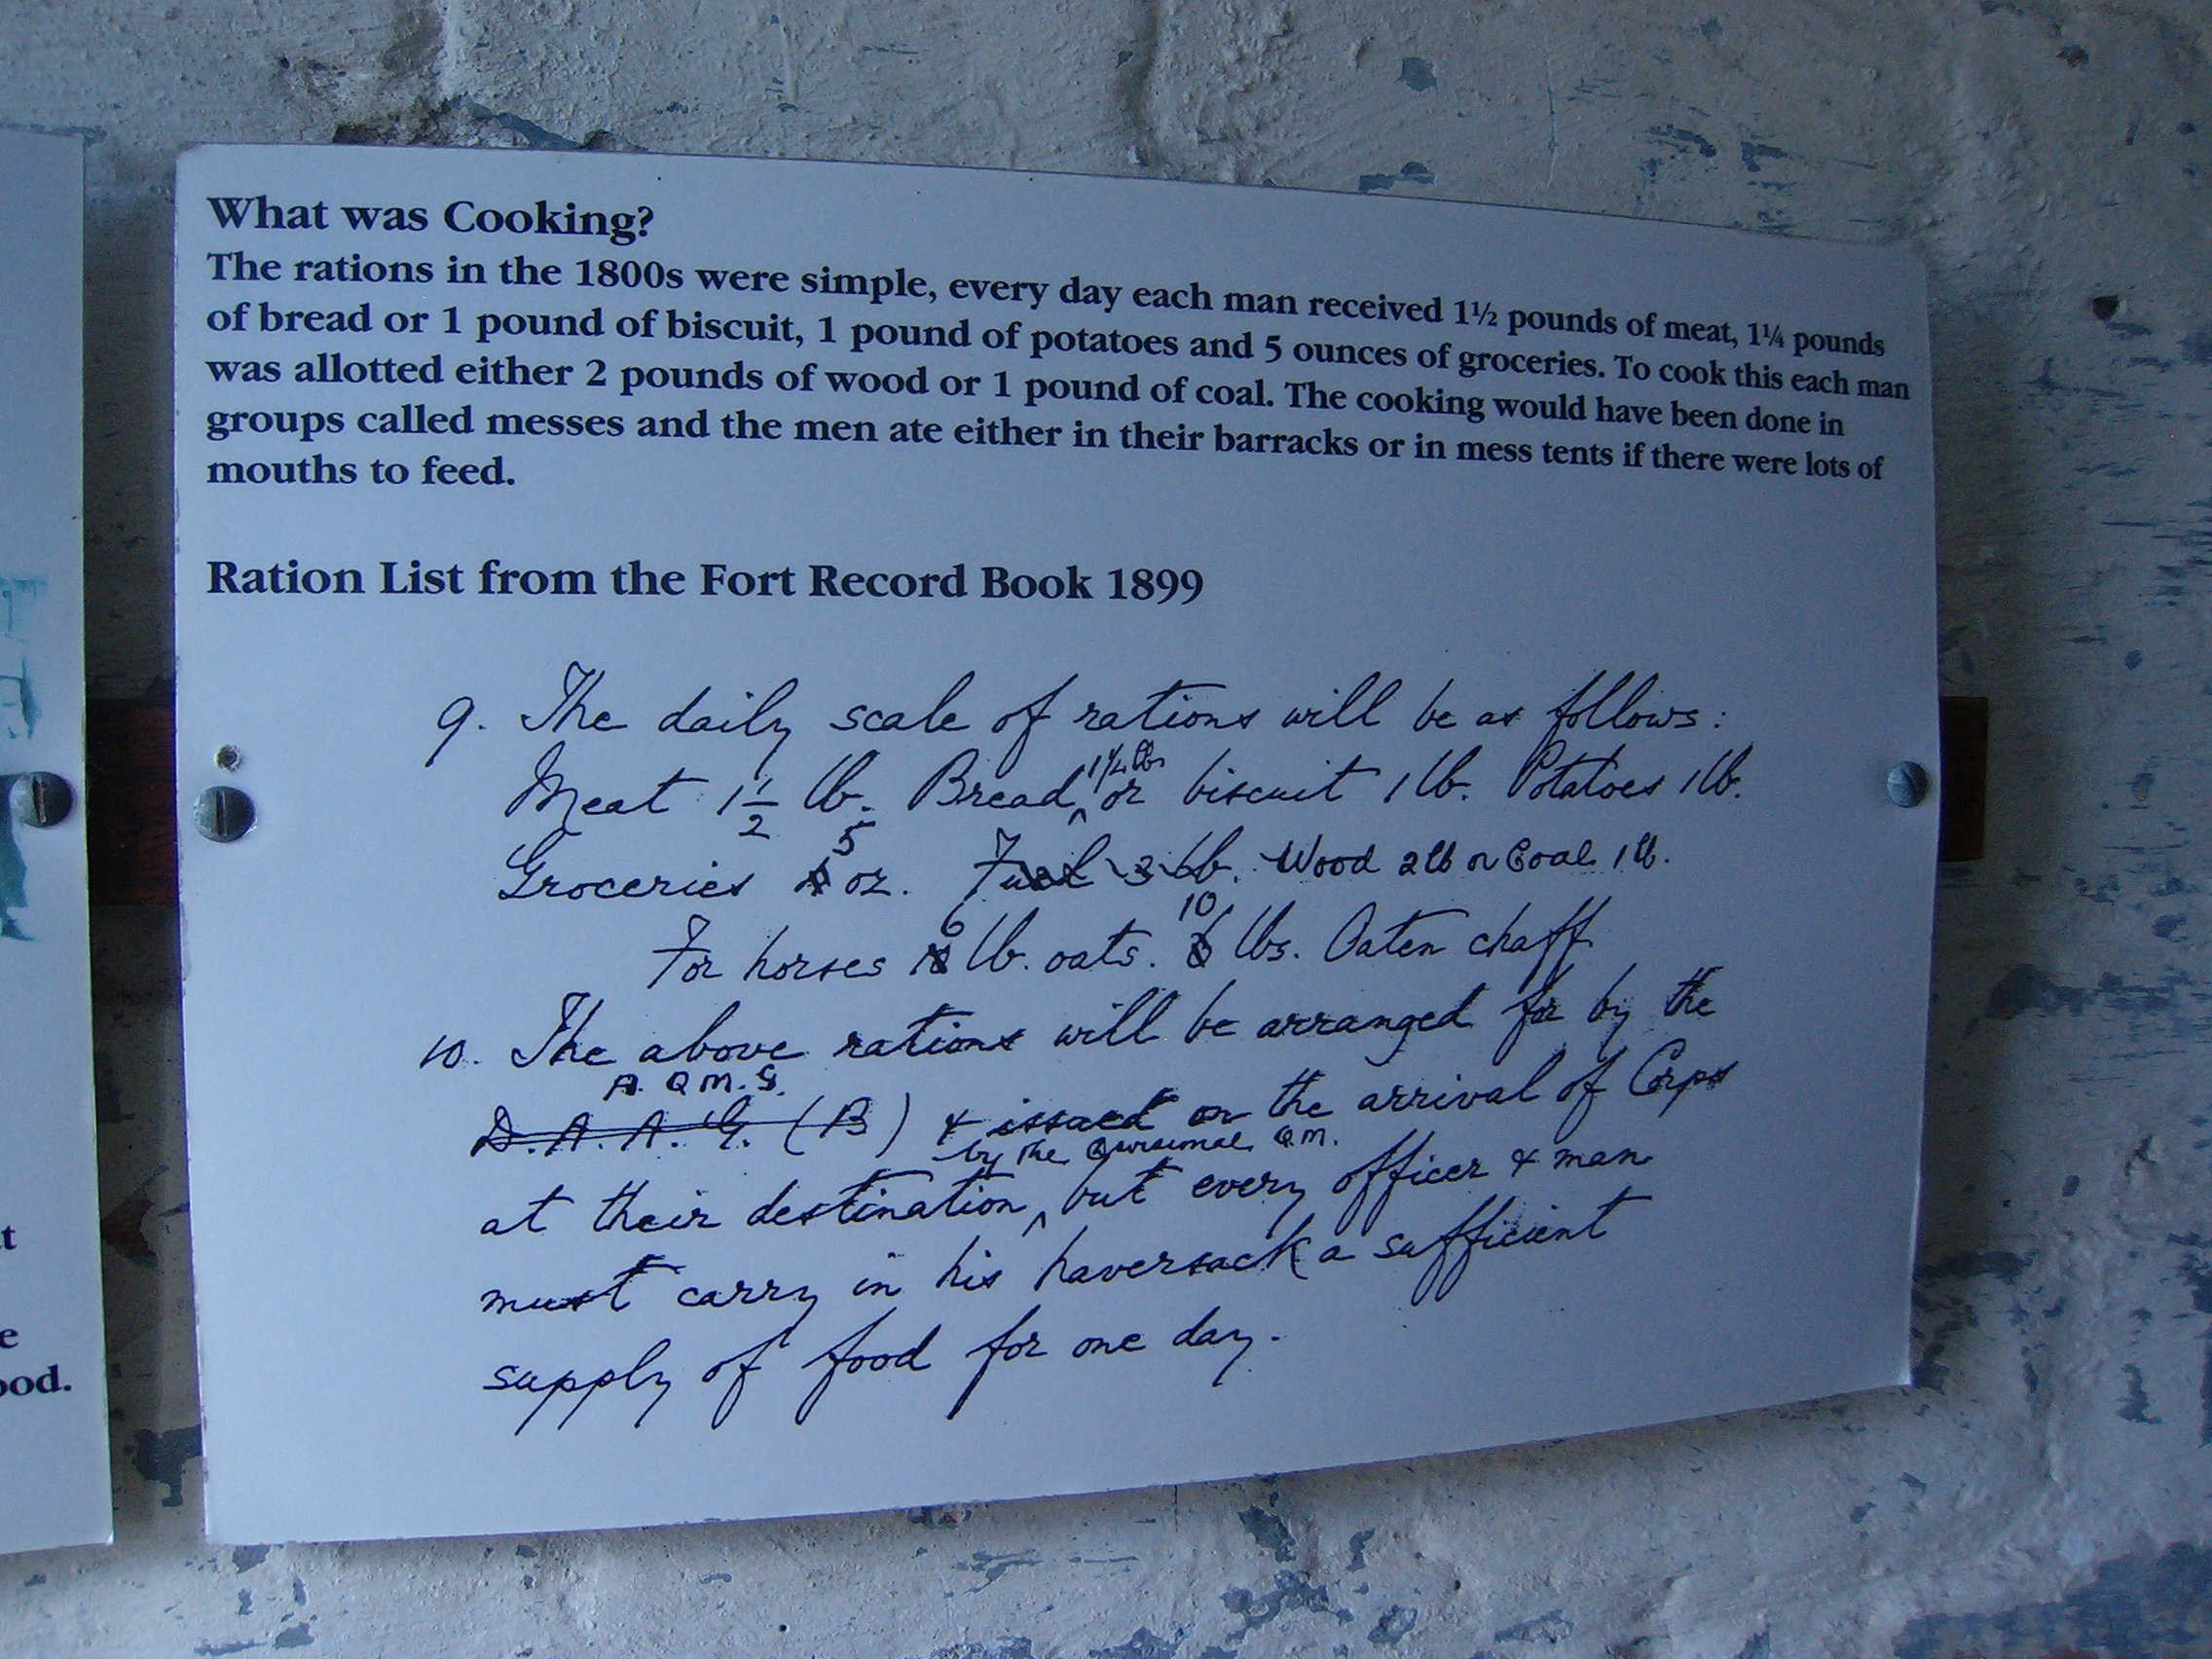 What was Cooking?
The rations in the 1800s were simple, every day each man received 1½ pounds of meat, 1¼ pounds
of bread or 1 pound of biscuit, 1 pound of potatoes and 5 ounces of groceries. To cook this each man
was allotted either 2 pounds of wood or 1 pound of coal. The cooking would have been done in
groups called messes and the men ate either in their barracks or in mess tents if there were lots of
mouths to feed.
Ration List from the Fort Record Book 1899
9. The daily scale of rations will be as follows:
1¼ lbs
Meat 1½ lb. Bread, or biscuit 1 lb. Potatoes 1 lb.
5
Groceries oz. Fuel 3 lb. Wood 2 lb or Coal 1 lb.
6 10
For horses lb. oats. lbs. Oaten chaff
10. The above rations will be arranged for by the
A. Q M. G.
D. A. A. G. (B) & issued on the arrival of Corps
by the Q.M.
at their destination, but every officer & man
must carry in his haversack a sufficient
supply of food for one day.
t
e
ood.